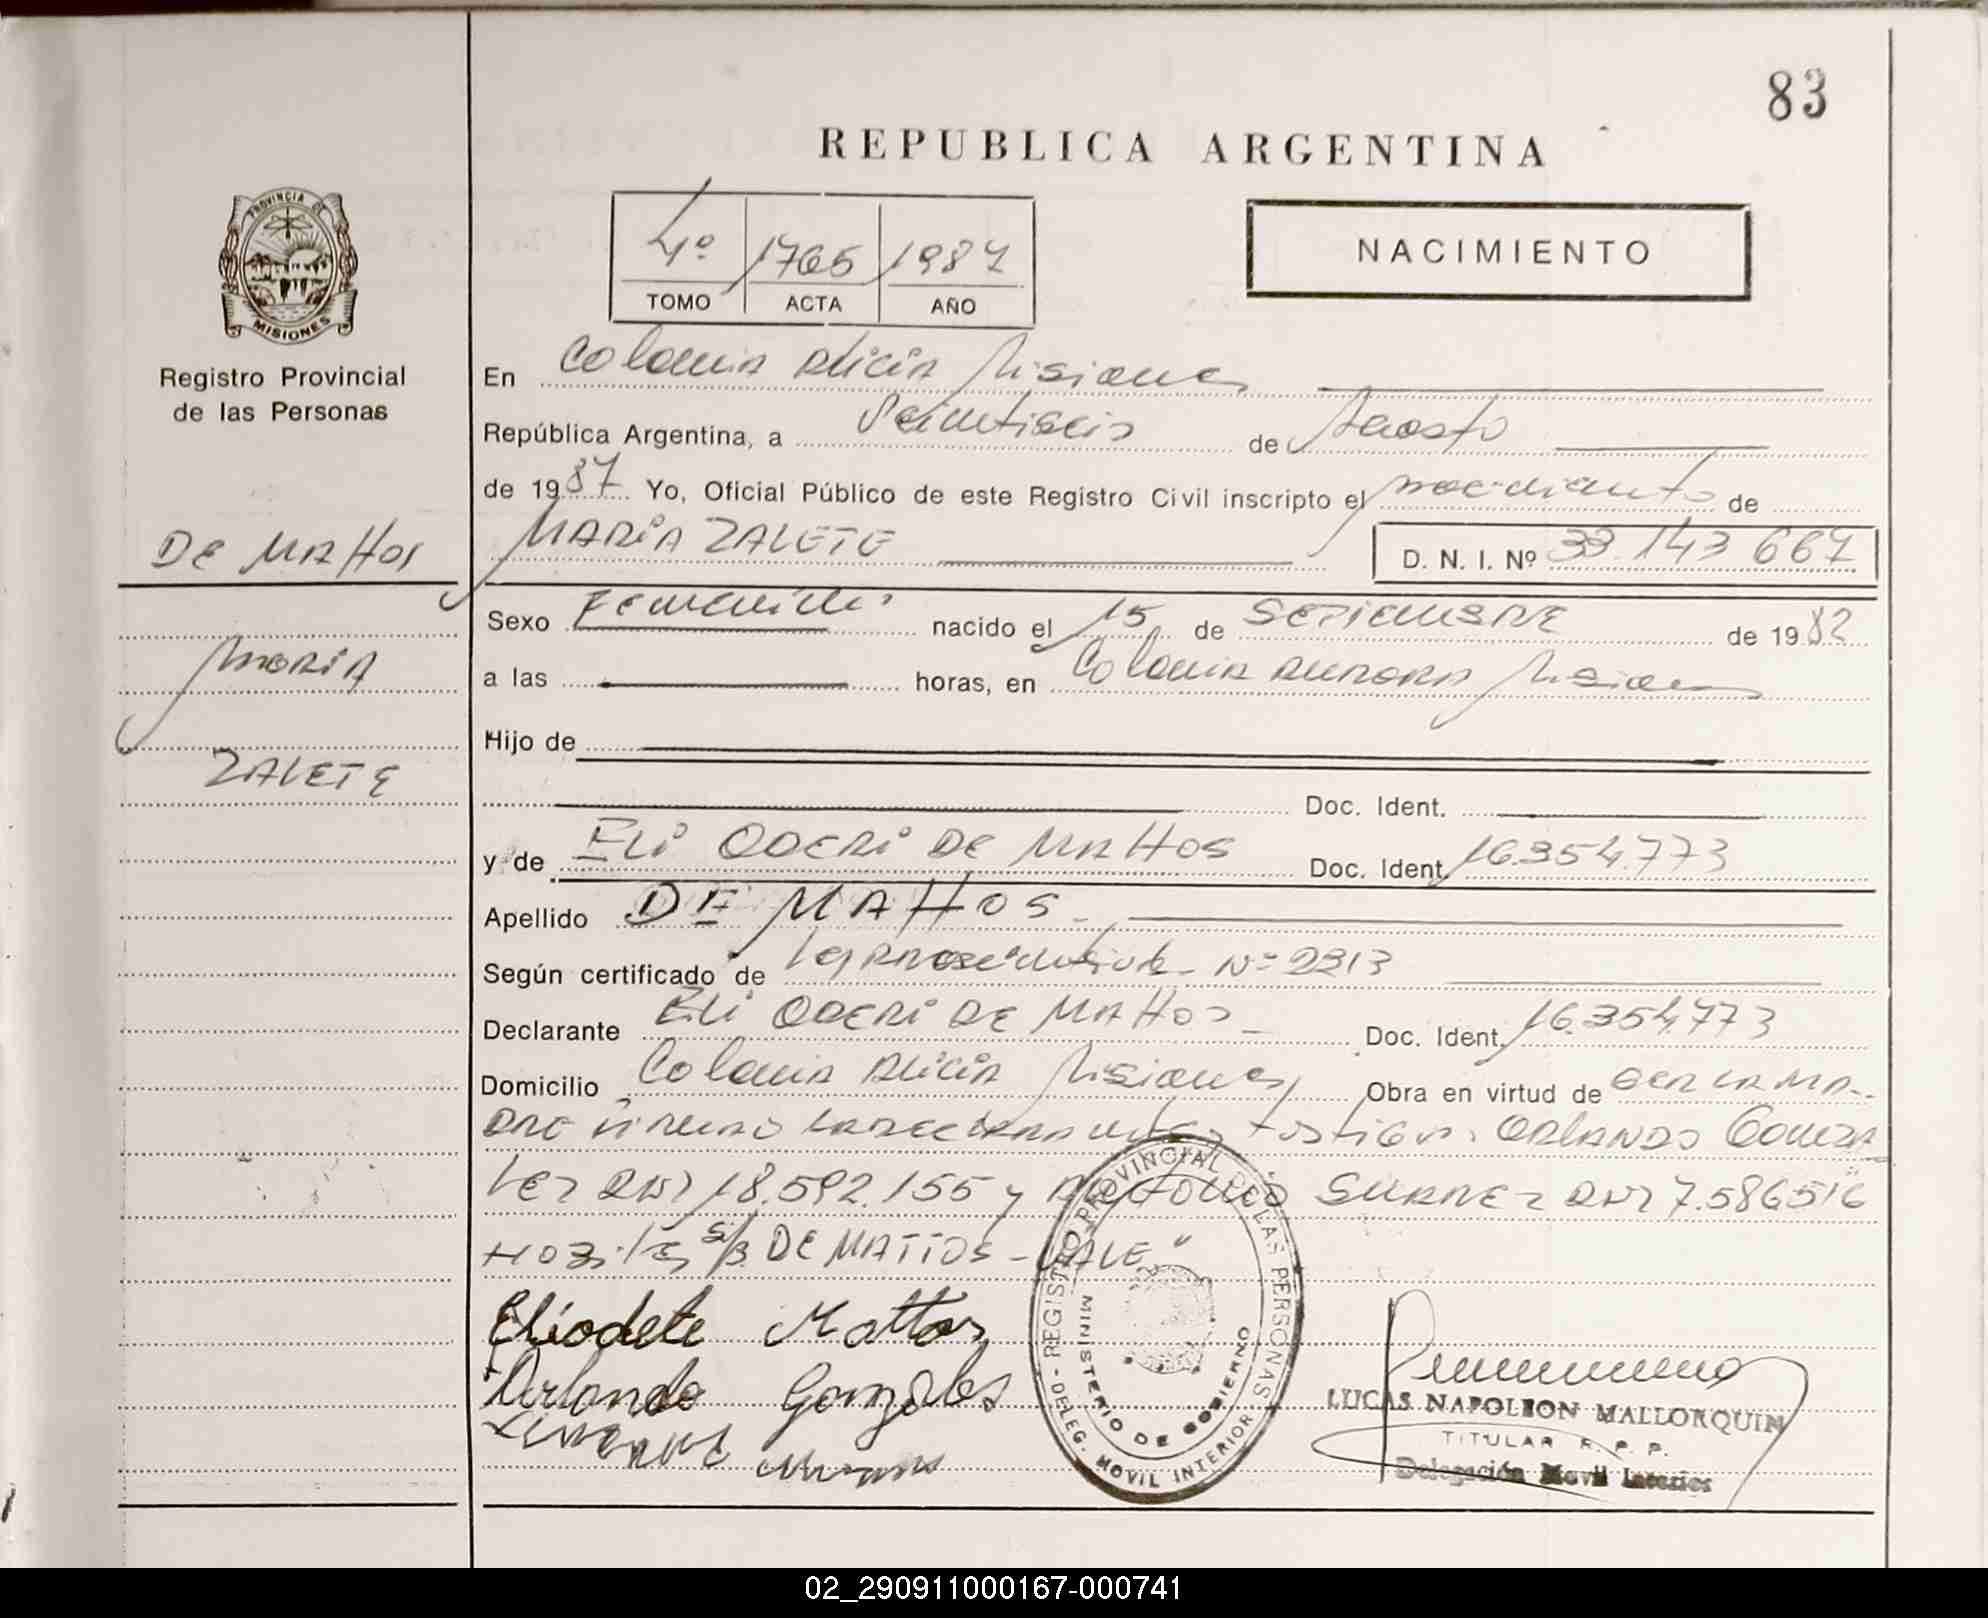 83
REPUBLICA ARGENTINA
PROVINCIA DE
MISIONES
Registro Provincial
de las Personas
4º 1765 1987
TOMO ACTA AÑO
NACIMIENTO
En Colonia Alicia Misiones
República Argentina, a Veintiseis de Agosto
de 1987 Yo, Oficial Público de este Registro Civil inscripto el nacimiento de
DE MAttos
MARIA ZALETE D. N. I. Nº 33.143 667
Sexo Femenino nacido el 15 de SEPTIEMBRE de 1982
MARIA
a las horas, en Colonia AURORA Misiones
Hijo de
ZALETE
Doc. Ident.
y de ELI ODERI DE MAttOS Doc. Ident. 16.354.773
Apellido DE MAttOS
Según certificado de Nº 2213
Declarante ELI ODERI DE MAttOS Doc. Ident. 16.354.773
Domicilio Colonia Alicia Misiones Obra en virtud de SER LA MA-
DRE testigos. ORLANDO Gonza
lez DNI 18.592.155 y ANTONIO SUAREZ DNI 7.586516
S/B. DE MATTOS - VALE"
Eliodete Mattos
Orlando Gonzales
REGISTRO PROVINCIAL DE LAS PERSONAS
MINISTERIO DE GOBIERNO
- DELEG. MOVIL INTERIOR
LUCAS NAPOLEON MALLORQUIN
TITULAR R. P. P.
Delegación Movil Interior
02_290911000167-000741